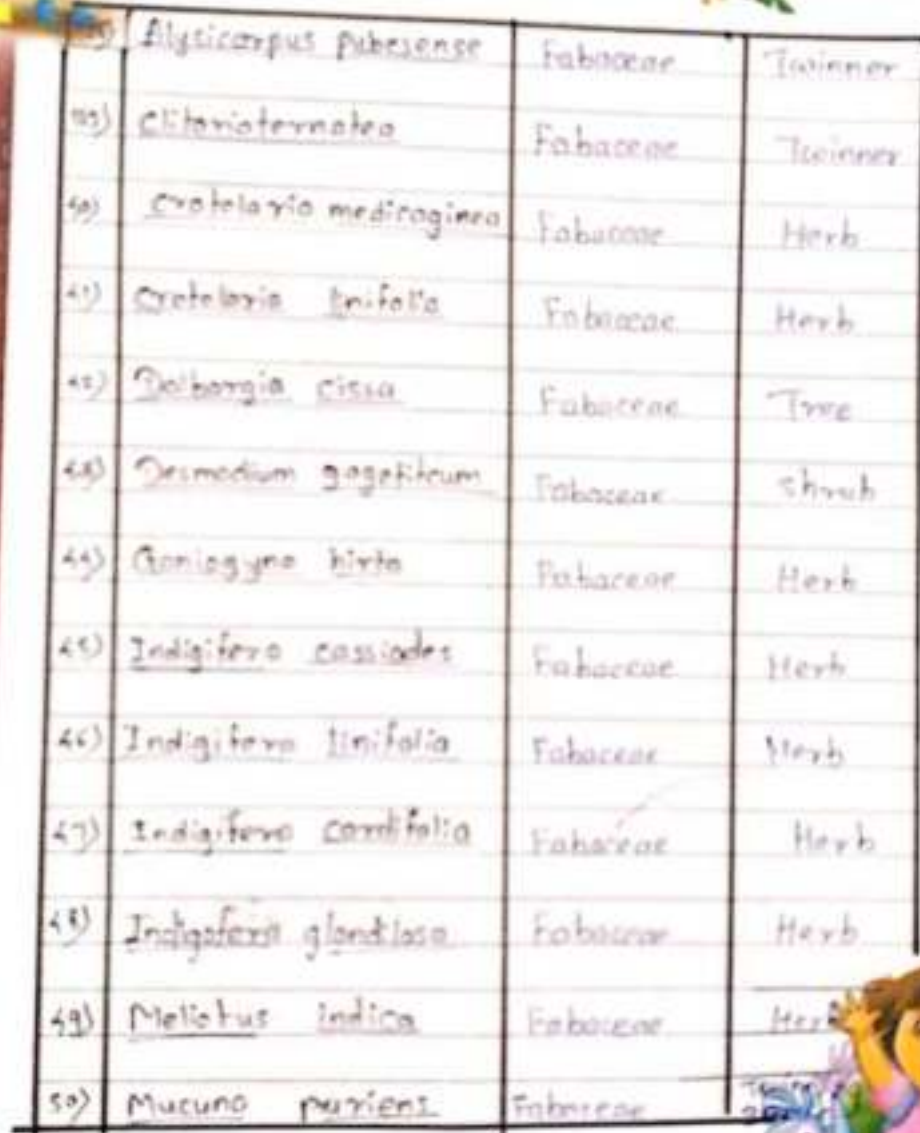 Alysicarpus pubesense Fabaceae Twinner
39) Clitoriaternatea Fabaceae Twinner
40) Crotelaria medicaginea Fabaceae Herb
41) Crotelaria linifolia Fabaceae Herb
42) Dalbargia cissa Fabaceae Tree
43) Desmodium gagetitcum Fabaceae Shrub
44) Goniogyna hirta Fabaceae Herb
45) Indigifera cassiodes Fabaceae Herb
46) Indigifera linifolia Fabaceae Herb
47) Indigifera cordifolia Fabaceae Herb
48) Indigofera glandlosa Fabaceae Herb
49) Meliotus indica Fabaceae Herb
50) Mucuna puriens Fabaceae